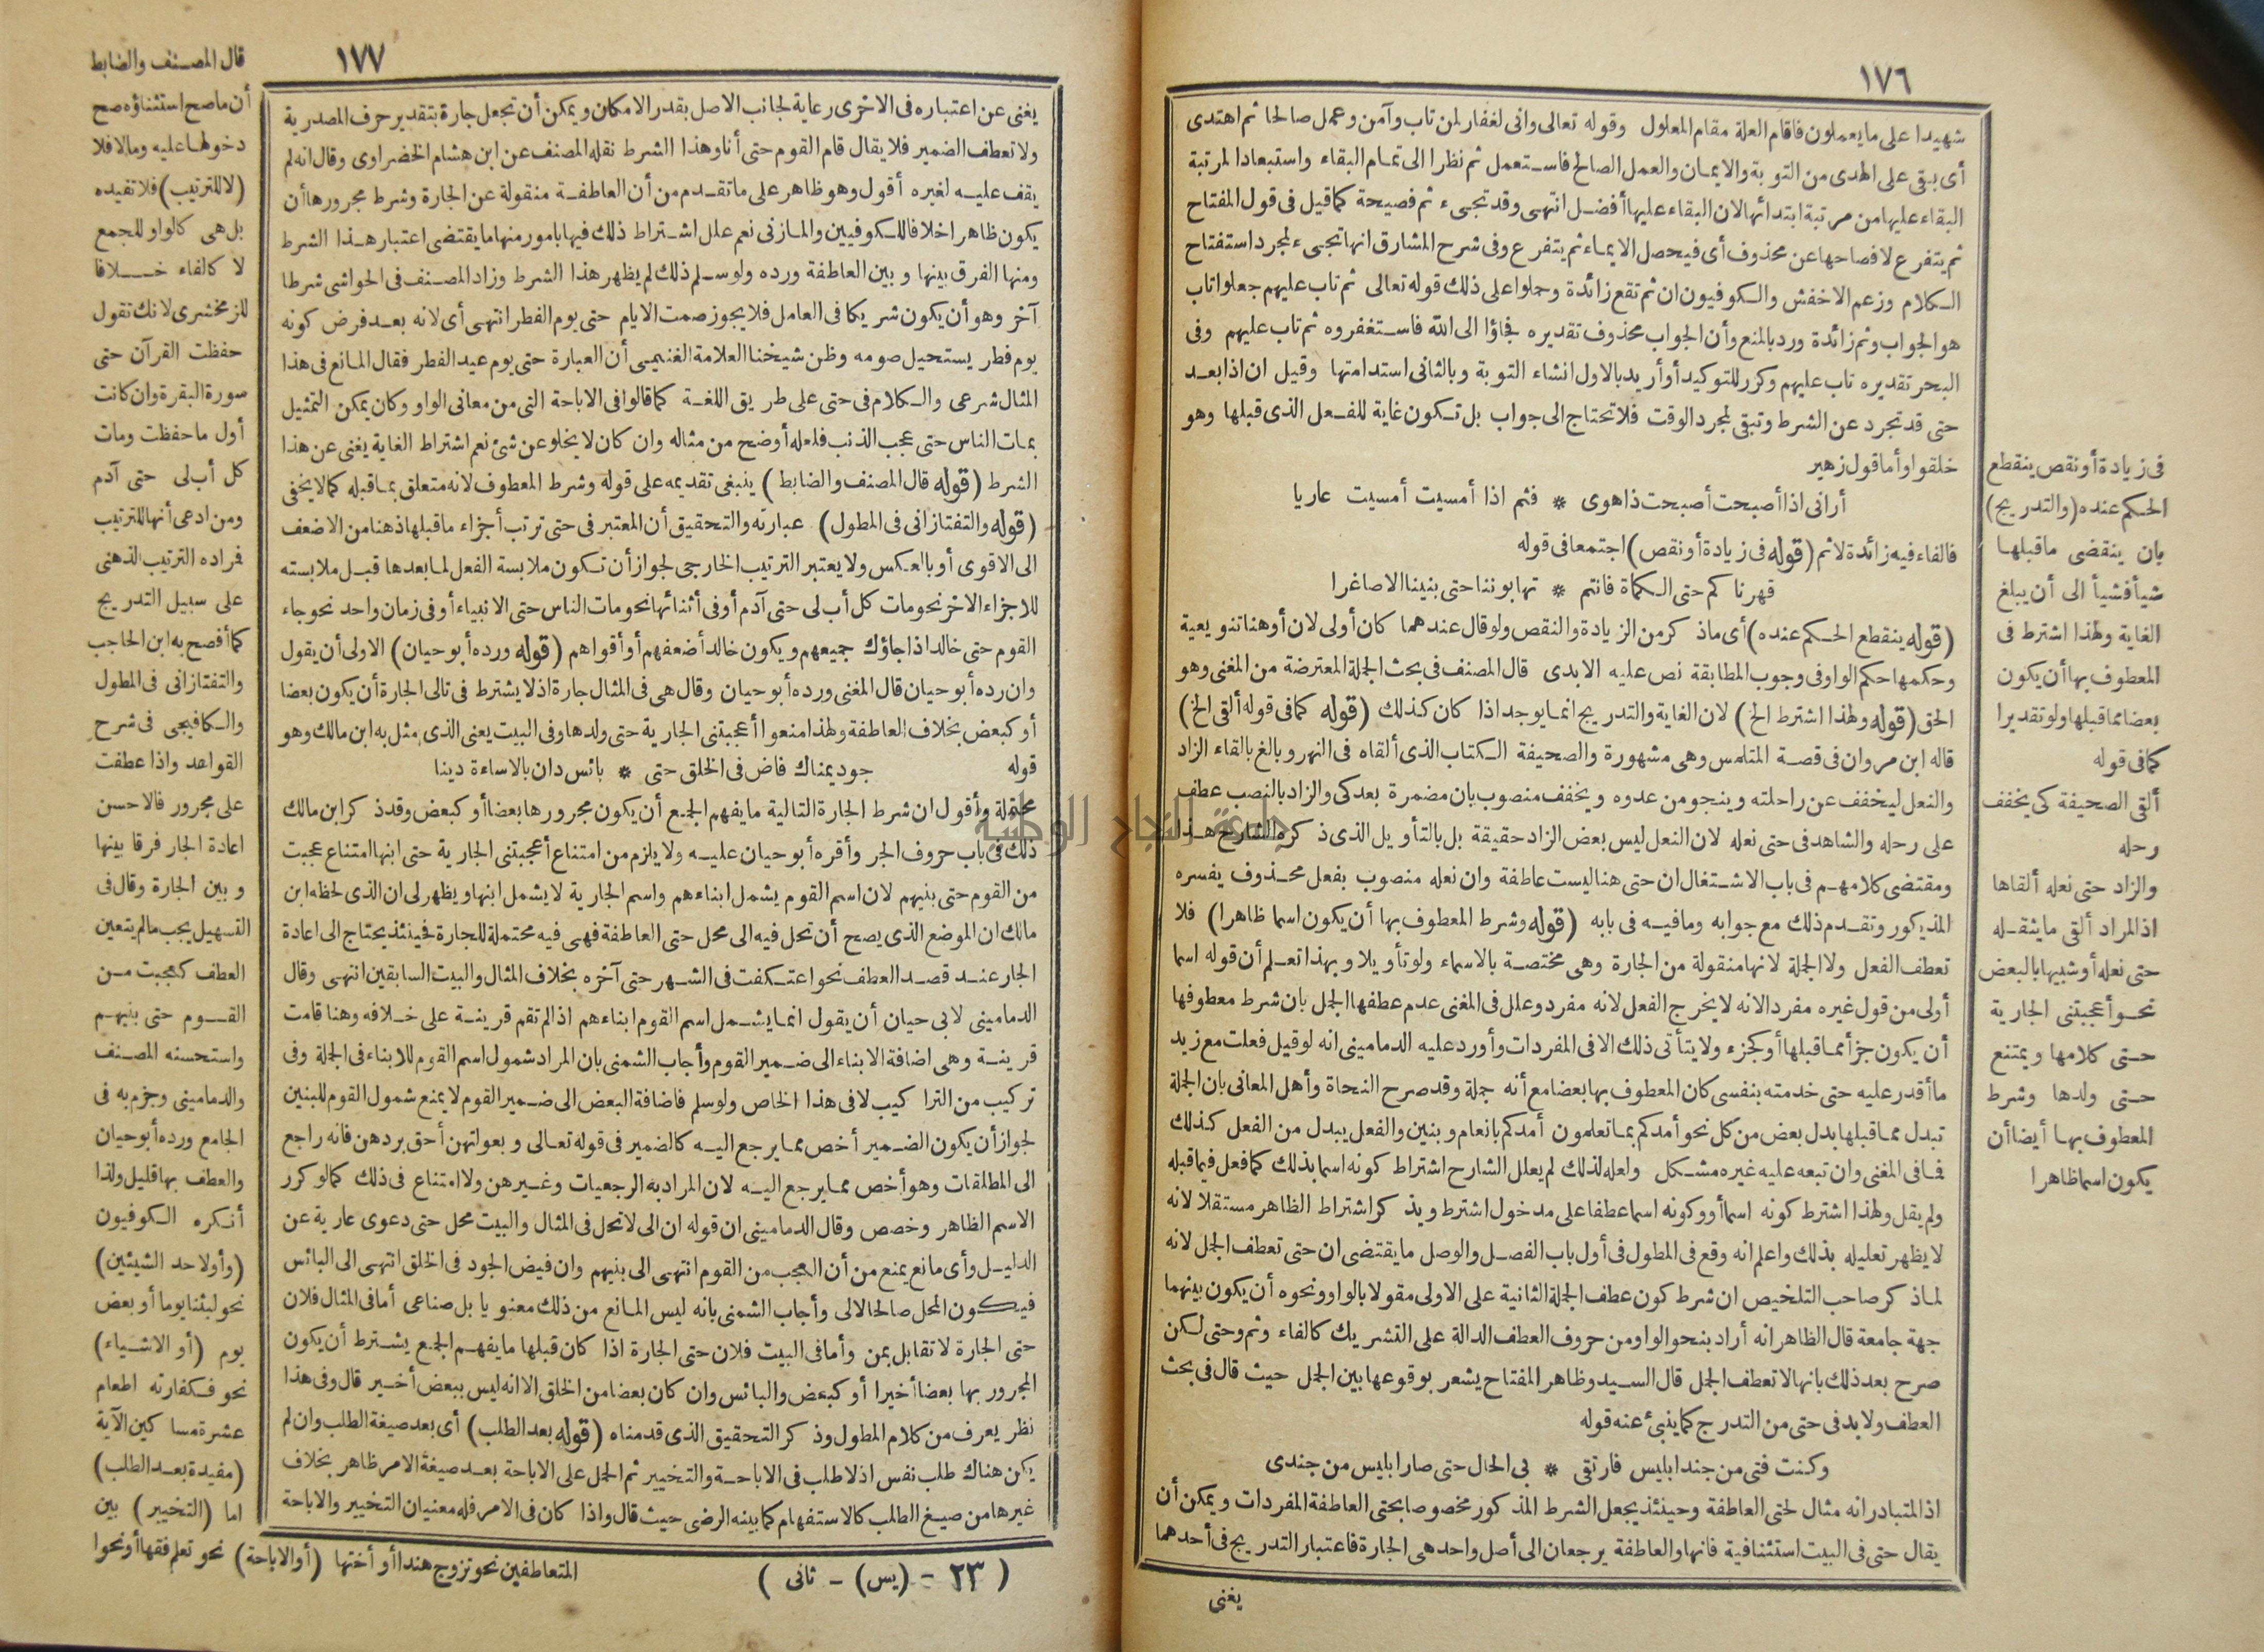 ١٧٦
شهيدا على ما يعملون فاقام العلة مقام المعلول وقوله تعالى واني لغفار لمن تاب وآمن وعمل صالحا ثم اهتدى
أى بقى على الهدى من التوبة والايمان والعمل الصالح فاستعمل ثم نظرا الى تمام البقاء واستبعادا لمرتبة
البقاء عليها من مرتبة ابتدائها لان البقاء عليها أفضل انتهى وقد تجىء ثم فصيحة كما قيل فى قول المفتاح
ثم يتفرع لافصاحها عن محذوف أى فيحصل الايماء ثم يتفرع وفى شرح المشارق انها تجىء لمجرد استفتاح
الكلام وزعم الاخفش والكوفيون ان ثم تقع زائدة وحملوا على ذلك قوله تعالى ثم تاب عليهم جعلوا تاب
هو الجواب وثم زائدة ورد بالمنع وأن الجواب محذوف تقديره فجاؤا الى الله فاستغفروه ثم تاب عليهم وفى
البحر تقديره تاب عليهم وكرر للتوكيد أو أريد بالاول انشاء التوبة وبالثانى استدامتها وقيل ان اذا بعد
حتى قد تجرد عن الشرط وتبقى لمجرد الوقت فلا تحتاج الى جواب بل تكون غاية للفعل الذى قبلها وهو
خلقوا وأما قول زهير
أرانى اذا أصبحت أصبحت ذا هوى * فثم اذا أمسيت أمسيت عاريا
فالفاء فيه زائدة لا ثم (قوله فى زيادة أو نقص) اجتمعا فى قوله
قهرناكم حتى الكماة فانتم * تهابوننا حتى بنينا الاصاغرا
(قوله ينقطع الحكم عنده) أى ماذكر من الزيادة والنقص ولو قال عندهما كان أولى لان أو هنا تنويعية
وحكمها حكم الواو فى وجوب المطابقة نص عليه الابدى قال المصنف فى بحث الجملة المعترضة من المغنى وهو
الحق (قوله ولهذا اشترط الخ) لان الغاية والتدريج انما يوجد اذا كان كذلك (قوله كما فى قوله ألقى الخ)
قاله ابن مروان فى قصة المتلمس وهى مشهورة والصحيفة الكتاب الذى ألقاه فى النهر وبالغ بالقاء الزاد
والنعل ليخفف عن راحلته وينجو من عدوه ويخفف منصوب بان مضمرة بعد كى والزاد بالنصب عطف
على رحله والشاهد فى حتى نعله لان النعل ليس بعض الزاد حقيقة بل بالتأويل الذى ذكره الشارح هذا
ومقتضى كلامهم فى باب الاشتغال ان حتى هنا ليست عاطفة وان نعله منصوب بفعل محذوف يفسره
المذيكور وتقدم ذلك مع جوابه ومافيه فى بابه (قوله وشرط المعطوف بها أن يكون اسما ظاهرا) فلا
تعطف الفعل ولا الجملة لانها منقولة من الجارة وهى مختصة بالاسماء ولو تأويلا وبهذا تعلم أن قوله اسما
أولى من قول غيره مفردا لانه لا يخرج الفعل لانه مفرد وعلل فى المغنى عدم عطفها الجمل بان شرط معطوفها
أن يكون جزأ مما قبلها أو كجزء ولا يتأتى ذلك الا فى المفردات وأورد عليه الدمامينى انه لو قيل فعلت مع زيد
ما أقدر عليه حتى خدمته بنفسى كان المعطوف بها بعضا مع أنه جملة وقد صرح النحاة وأهل المعانى بان الجملة
تبدل مما قبلها بدل بعض من كل نحو أمدكم بما تعلمون أمدكم بانعام وبنين والفعل يبدل من الفعل كذلك
فما فى المغنى وان تبعه عليه غيره مشكل ولعله لذلك لم يعلل الشارح اشتراط كونه اسما بذلك كما فعل فيما قبله
ولم يقل ولهذا اشترط كونه اسما أو وكونه اسما عطفا على مدخول اشترط ويذكر اشتراط الظاهر مستقلا لانه
لا يظهر تعليله بذلك واعلم انه وقع فى المطول فى أول باب الفصل والوصل ما يقتضى ان حتى تعطف الجمل لانه
لماذكر صاحب التلخيص ان شرط كون عطف الجملة الثانية على الاولى مقولا بالواو ونحوه أن يكون بينهما
جهة جامعة قال الظاهر انه أراد بنحو الواو من حروف العطف الدالة على التشريك كالفاء وثم وحتى لكن
صرح بعد ذلك بانها لا تعطف الجمل قال السيد وظاهر المفتاح يشعر بوقوعها بين الجمل حيث قال فى بحث
العطف ولابد فى حتى من التدرج كما ينبئ عنه قوله
وكنت فتى من جند ابليس فارتقى * بى الحال حتى صار ابليس من جندى
اذ المتبادر انه مثال لحتى العاطفة وحينئذ يجعل الشرط المذكور مخصوصا بحتى العاطفة المفردات ويمكن أن
يقال حتى فى البيت استئنافية فانها والعاطفة يرجعان الى أصل واحد هى الجارة فاعتبار التدريج فى أحدهما
يغنى
فى زيادة أو نقص ينقطع
الحكم عنده (والتدريج)
بان ينقضى ماقبلها
شيأ فشيأ الى أن يبلغ
الغاية ولهذا اشترط فى
المعطوف بها أن يكون
بعضا مما قبلها ولو تقديرا
كما فى قوله
ألقى الصحيفة كى يخفف
رحله
والزاد حتى نعله ألقاها
اذ المراد ألقى ما يثقله
حتى نعله أو شبيها بالبعض
نحو أعجبتنى الجارية
حتى كلامها ويمتنع
حتى ولدها وشرط
المعطوف بها أيضا أن
يكون اسما ظاهرا
١٧٧
يغنى عن اعتباره فى الاخرى رعاية لجانب الاصل بقدر الامكان ويمكن أن تجعل جارة بتقدير حرف المصدرية
ولا تعطف الضمير فلا يقال قام القوم حتى أنا وهذا الشرط نقله المصنف عن ابن هشام الخضراوى وقال انه لم
يقف عليه لغيره أقول وهو ظاهر على ما تقدم من أن العاطفة منقولة عن الجارة وشرط مجرورها أن
يكون ظاهرا خلافا للكوفيين والمازنى نعم علل اشتراط ذلك فيها بامور منها ما يقتضى اعتبار هذا الشرط
ومنها الفرق بينها وبين العاطفة ورده ولو سلم ذلك لم يظهر هذا الشرط وزاد المصنف فى الحواشى شرطا
آخر وهو أن يكون شريكا فى العامل فلا يجوز صمت الايام حتى يوم الفطر انتهى أى لانه بعد فرض كونه
يوم فطر يستحيل صومه وظن شيخنا العلامة الغنيمى أن العبارة حتى يوم عيد الفطر فقال المانع فى هذا
المثال شرعى والكلام فى حتى على طريق اللغة كما قالوا فى الاباحة التى من معانى الواو وكان يمكن التمثيل
بمات الناس حتى عجب الذنب فلعله أوضح من مثاله وان كان لا يخلو عن شئ نعم اشتراط الغاية يغنى عن هذا
الشرط (قوله قال المصنف والضابط) ينبغى تقديمه على قوله وشرط المعطوف لانه متعلق بما قبله كما لا يخفى
(قوله والتفتازانى فى المطول) عبارته والتحقيق أن المعتبر فى حتى ترتب أجزاء ما قبلها ذهنا من الاضعف
الى الاقوى أو بالعكس ولا يعتبر الترتيب الخارجى لجواز أن تكون ملابسة الفعل لما بعدها قبل ملابسته
للاجزاء الاخر نحو مات كل أب لى حتى آدم أو فى أثنائها نحو مات الناس حتى الانبياء أو فى زمان واحد نحو جاء
القوم حتى خالد اذا جاؤك جميعهم ويكون خالد أضعفهم أو أقواهم (قوله ورده أبو حيان) الاولى أن يقول
وان رده أبو حيان قال المغنى ورده أبو حيان وقال هى فى المثال جارة اذ لا يشترط فى تالى الجارة أن يكون بعضا
أو كبعض بخلاف العاطفة ولهذا منعوا أعجبتنى الجارية حتى ولدها وفى البيت يعنى الذى مثل به ابن مالك وهو
قوله جود يمناك فاض فى الخلق حتى * بائس دان بالاساءة دينا
محتملة وأقول ان شرط الجارة التالية ما يفهم الجمع أن يكون مجرورها بعضا أو كبعض وقد ذكر ابن مالك
ذلك فى باب حروف الجر وأقره أبو حيان عليه ولا يلزم من امتناع أعجبتنى الجارية حتى ابنها امتناع عجبت
من القوم حتى بنيهم لان اسم القوم يشمل ابناءهم واسم الجارية لا يشمل ابنها ويظهر لى ان الذى لحظه ابن
مالك ان الموضع الذى يصح أن تحل فيه الى محل حتى العاطفة فهى فيه محتملة للجارة فحينئذ يحتاج الى اعادة
الجار عند قصد العطف نحو اعتكفت فى الشهر حتى آخره بخلاف المثال والبيت السابقين انتهى وقال
الدمامينى لابى حيان أن يقول انما يشمل اسم القوم ابناءهم اذا لم تقم قرينة على خلافه وهنا قامت
قرينة وهى اضافة الابناء الى ضمير القوم وأجاب الشمنى بان المراد شمول اسم القوم للابناء فى الجملة وفى
تركيب من التراكيب لا فى هذا الخاص ولو سلم فاضافة البعض الى ضمير القوم لا يمنع شمول القوم للبنين
لجواز أن يكون الضمير أخص مما يرجع اليه كالضمير فى قوله تعالى وبعولتهن أحق بردهن فانه راجع
الى المطلقات وهو أخص مما يرجع اليه لان المراد به الرجعيات وغيرهن ولا امتناع فى ذلك كما لو كرر
الاسم الظاهر وخصص وقال الدمامينى ان قوله ان الى لا تحل فى المثال والبيت محل حتى دعوى عارية عن
الدليل وأى مانع يمنع من أن العجب من القوم انتهى الى بنيهم وان فيض الجود فى الخلق انتهى الى البائس
فيكون المحل صالحا لالى وأجاب الشمنى بانه ليس المانع من ذلك معنويا بل صناعى أما فى المثال فلان
حتى الجارة لا تقابل بمن وأما فى البيت فلان حتى الجارة اذا كان قبلها ما يفهم الجمع يشترط أن يكون
المجرور بها بعضا أخيرا أو كبعض والبائس وان كان بعضا من الخلق الا انه ليس ببعض أخير قال وفى هذا
نظر يعرف من كلام المطول وذكر التحقيق الذى قدمناه (قوله بعد الطلب) أى بعد صيغة الطلب وان لم
يكن هناك طلب نفس اذ لا طلب فى الاباحة والتخيير ثم الحمل على الاباحة بعد صيغة الامر ظاهر بخلاف
غيرها من صيغ الطلب كالاستفهام كما بينه الرضى حيث قال واذا كان فى الامر فله معنيان التخيير والاباحة
(٢٣ - (يس) - ثانى)
قال المصنف والضابط
أن ماصح استثناؤه صح
دخولها عليه ومالا فلا
(لا للترتيب) فلا تفيده
بل هى كالواو للجمع
لا كالفاء خلافا
للزمخشرى لانك تقول
حفظت القرآن حتى
سورة البقرة وان كانت
أول ما حفظت ومات
كل أب لى حتى آدم
ومن ادعى أنها للترتيب
فمراده الترتيب الذهنى
على سبيل التدريج
كما أفصح به ابن الحاجب
والتفتازانى فى المطول
والكافيجى فى شرح
القواعد واذا عطفت
على مجرور فالاحسن
اعادة الجار فرقا بينها
وبين الجارة وقال فى
التسهيل يجب مالم يتعين
العطف كعجبت من
القوم حتى بنيهم
واستحسنه المصنف
والدمامينى وجزم به فى
الجامع ورده أبو حيان
والعطف بها قليل ولذا
أنكره الكوفيون
(وأو لاحد الشيئين)
نحو لبثنا يوما أو بعض
يوم (أو الاشياء)
نحو فكفارته اطعام
عشرة مساكين الآية
(مفيدة بعد الطلب)
اما (التخيير) بين
المتعاطفين نحو تزوج هندا أو أختها (أو الاباحة) نحو تعلم فقها أو نحوا
جامعة النجاح الوطنية